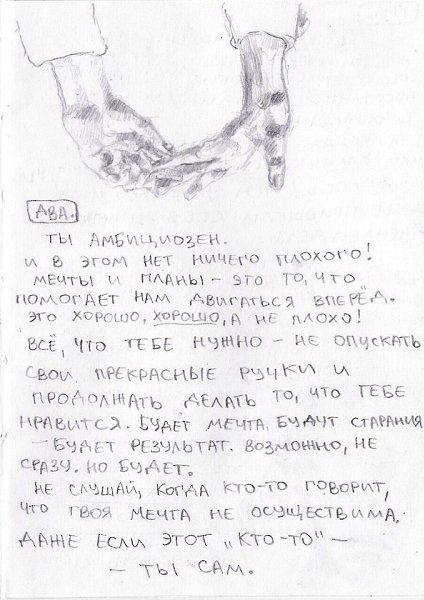 ДВА.
ТЫ АМБИЦИОЗЕН.
И В ЭТОМ НЕТ НИЧЕГО ПЛОХОГО!
МЕЧТЫ И ПЛАНЫ – ЭТО ТО, ЧТО
ПОМОГАЕТ НАМ ДВИГАТЬСЯ ВПЕРЁД.
ЭТО ХОРОШО, ХОРОШО, А НЕ ПЛОХО!
ВСЁ, ЧТО ТЕБЕ НУЖНО – НЕ ОПУСКАТЬ
СВОИ ПРЕКРАСНЫЕ РУЧКИ И
ПРОДОЛЖАТЬ ДЕЛАТЬ ТО, ЧТО ТЕБЕ
НРАВИТСЯ. БУДЕТ МЕЧТА, БУДУТ СТАРАНИЯ
– БУДЕТ РЕЗУЛЬТАТ. ВОЗМОЖНО, НЕ
СРАЗУ. НО БУДЕТ.
НЕ СЛУШАЙ, КОГДА КТО-ТО ГОВОРИТ,
ЧТО ТВОЯ МЕЧТА НЕ ОСУЩЕСТВИМА.
ДАЖЕ ЕСЛИ ЭТОТ „КТО-ТО" –
– ТЫ САМ.